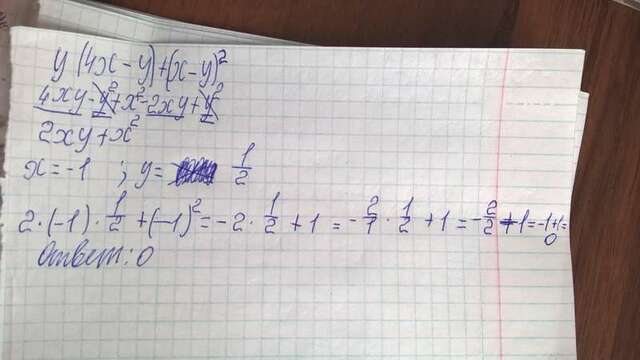 y(4x-y)+(x-y)²
4xy-y²+x²-2xy+y²
2xy+x²
x=-1 ; y= 1/2
2·(-1)·1/2+(-1)²=-2·1/2+1=-2/1·1/2+1=-2/2+1=-1+1=
0
Ответ: 0